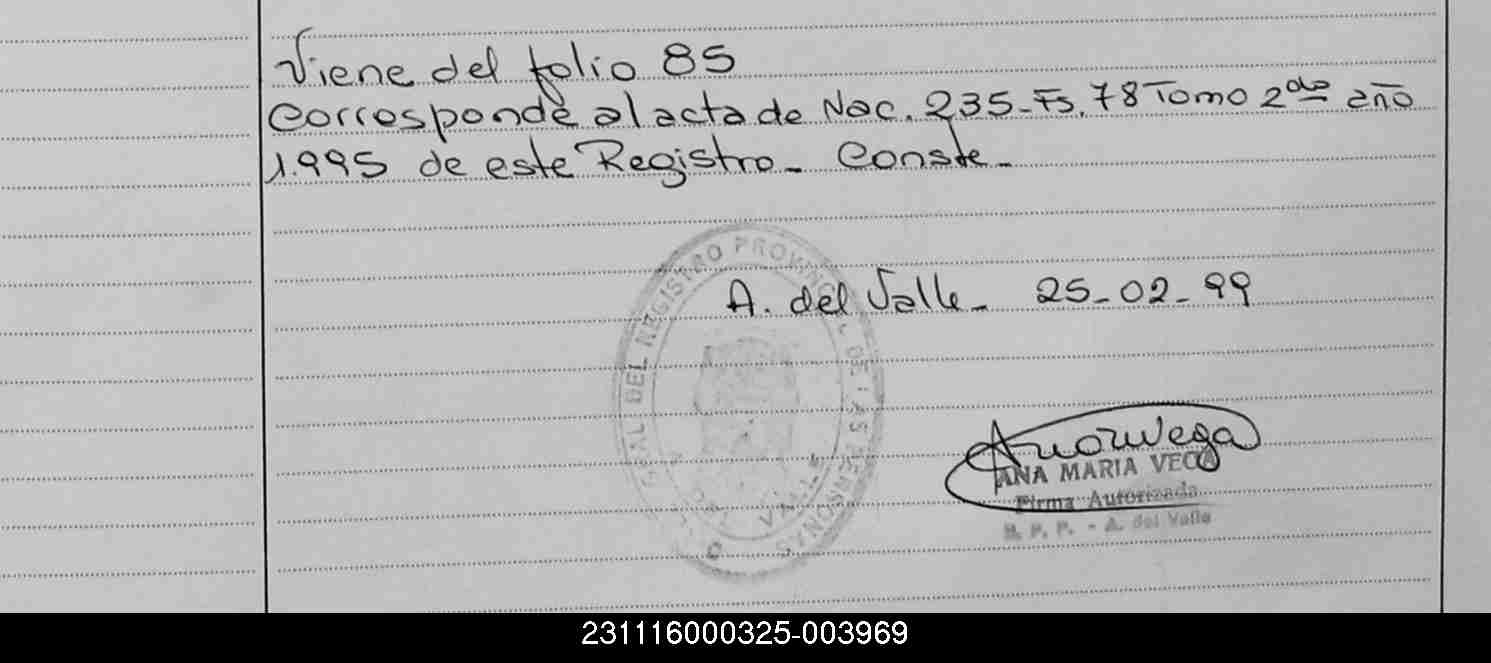 Viene del folio 85
Corresponde al acta de Nac. 235-Fs. 78 Tomo 2do año
1.995 de este Registro- Conste-
A. del Valle- 25-02-99
DEL REGISTRO PROVINCIAL DE LAS PERSONAS
ANA MARIA VEGA
Firma Autorizada
R. P. P. - A. del Valle
231116000325-003969